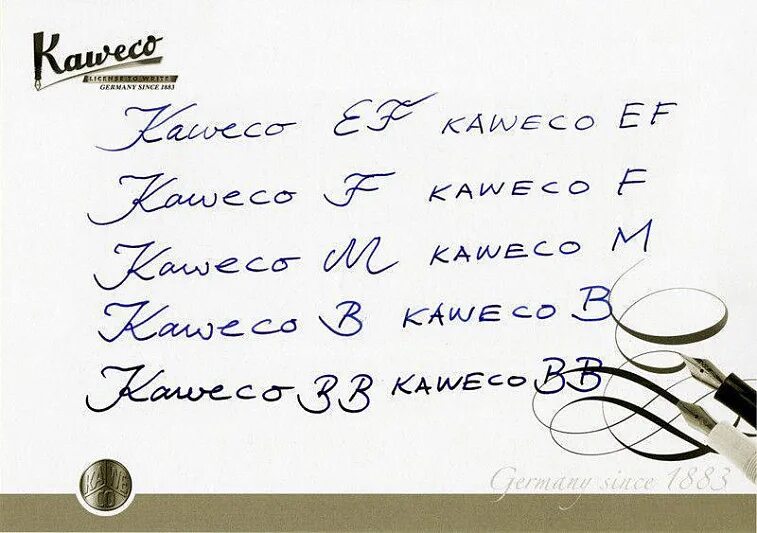 Kaweco
LICENSE TO WRITE
GERMANY SINCE 1883
Kaweco EF KAWECO EF
Kaweco F KAWECO F
Kaweco M KAWECO M
Kaweco B KAWECO B
Kaweco BB KAWECO BB
KA WE
CO
Germany since 1883